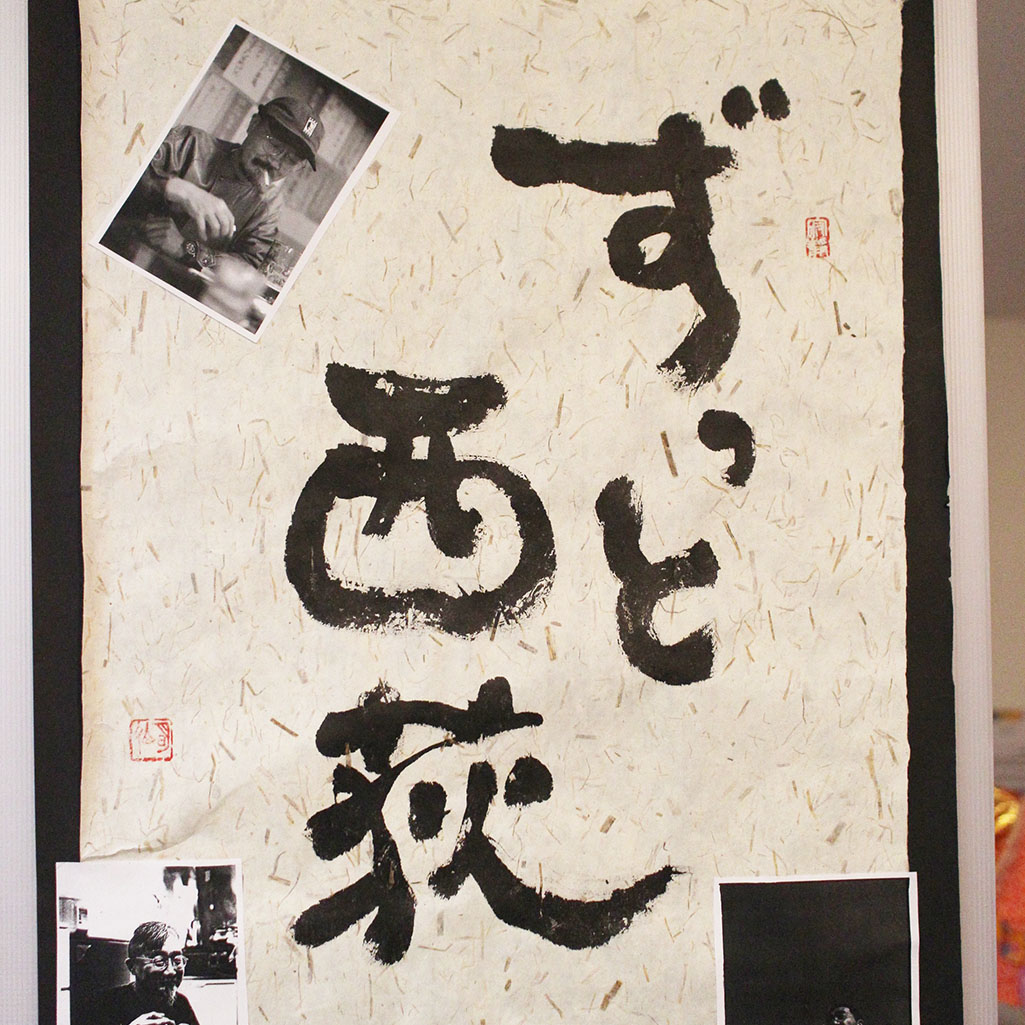 ずっと
西荻